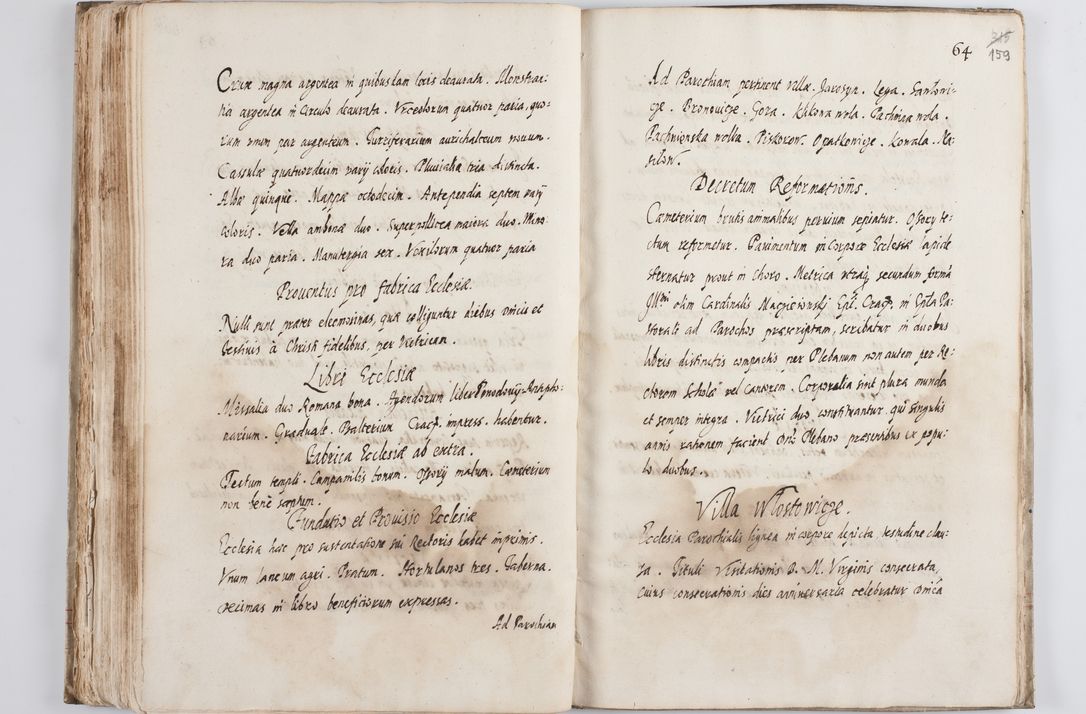 Crux magna argentea in quibusdam locis deaurata. Monstran:
tia argentea in circulo deaurata. Vrceolorum quatuor paria, quo:
rum vnum par argenteum. Turriferarium aurichalceum nouum.
Casulæ quatuordecim varij coloris. Pluuialia tria distincta.
Albæ quinque. Mappæ octodecim. Antependia septem varij
coloris. Vella ambonæ duo. Superpellicea maiora duo. Mino:
ra duo paria. Manutergia sex. Vexillorum quatuor paria
Prouentus pro fabrica Ecclesiæ
Nulli sunt præter eleemosinas, quæ colliguntur diebus dnicis et
festiuis à Christi fidelibus, per Vietricum.
Libri Ecclesiæ
Missalia duo Romana bona. Agendorum liber Antipho:
narium. Graduale. Psalterium Crac. impress. habentur.
Fabrica Ecclesiæ ab extra.
Tectum templi. Campanilis bonum. Ossorij malum. Cæmeterium
non bene sæptum.
Fundatio et Prouisio Ecclesiæ
Ecclesia hæc pro sustentatione sui Rectoris habet inprimis.
Vnum laneum agri. Pratum. Hortulanos tres. Taberna.
Decimas in libro beneficiorum expressas.
Ad Parochiam
64
315
159
Ad Parochiam pertinent villæ. Jarosyn. Lega. Santowi:
cze. Bronowicze. Gora. Klikowa wola. Pachniowa wola.
Pachniowska wolka. Piskorow. Opatkowicze. Kowala. Na:
silow.
Decretum Reformationis.
Cæmeterium brutis animalibus peruium sepiatur. Ossorij te:
ctum reformetur. Pauimentum in corpore Ecclesiæ lapide
sternatur prout in Choro. Metrica vtraq secundum formã
Jllmi olim Cardinalis Macieiowskj Epi. Crac. in Epla Pa:
storali ad Parochos præscriptam, scribatur in duobus
libris distinctis compactis per Plebanum non autem per Re:
ctorem Scholæ vel Cantorem. Corporalia sint plura munda
et semper integra. Vietrici duo constituantur. qui singulis
annis rationem facient Dno Plebano præsentibus ex popu:
lo duobus.
Villa Wlostowicze.
Ecclesia Parochialis lignea in corpore depicta, testudine clau:
sa. Tituli Visitationis B. M. Virginis consecrata,
Cuius consecrationis dies anniuersaria celebratur Dnica